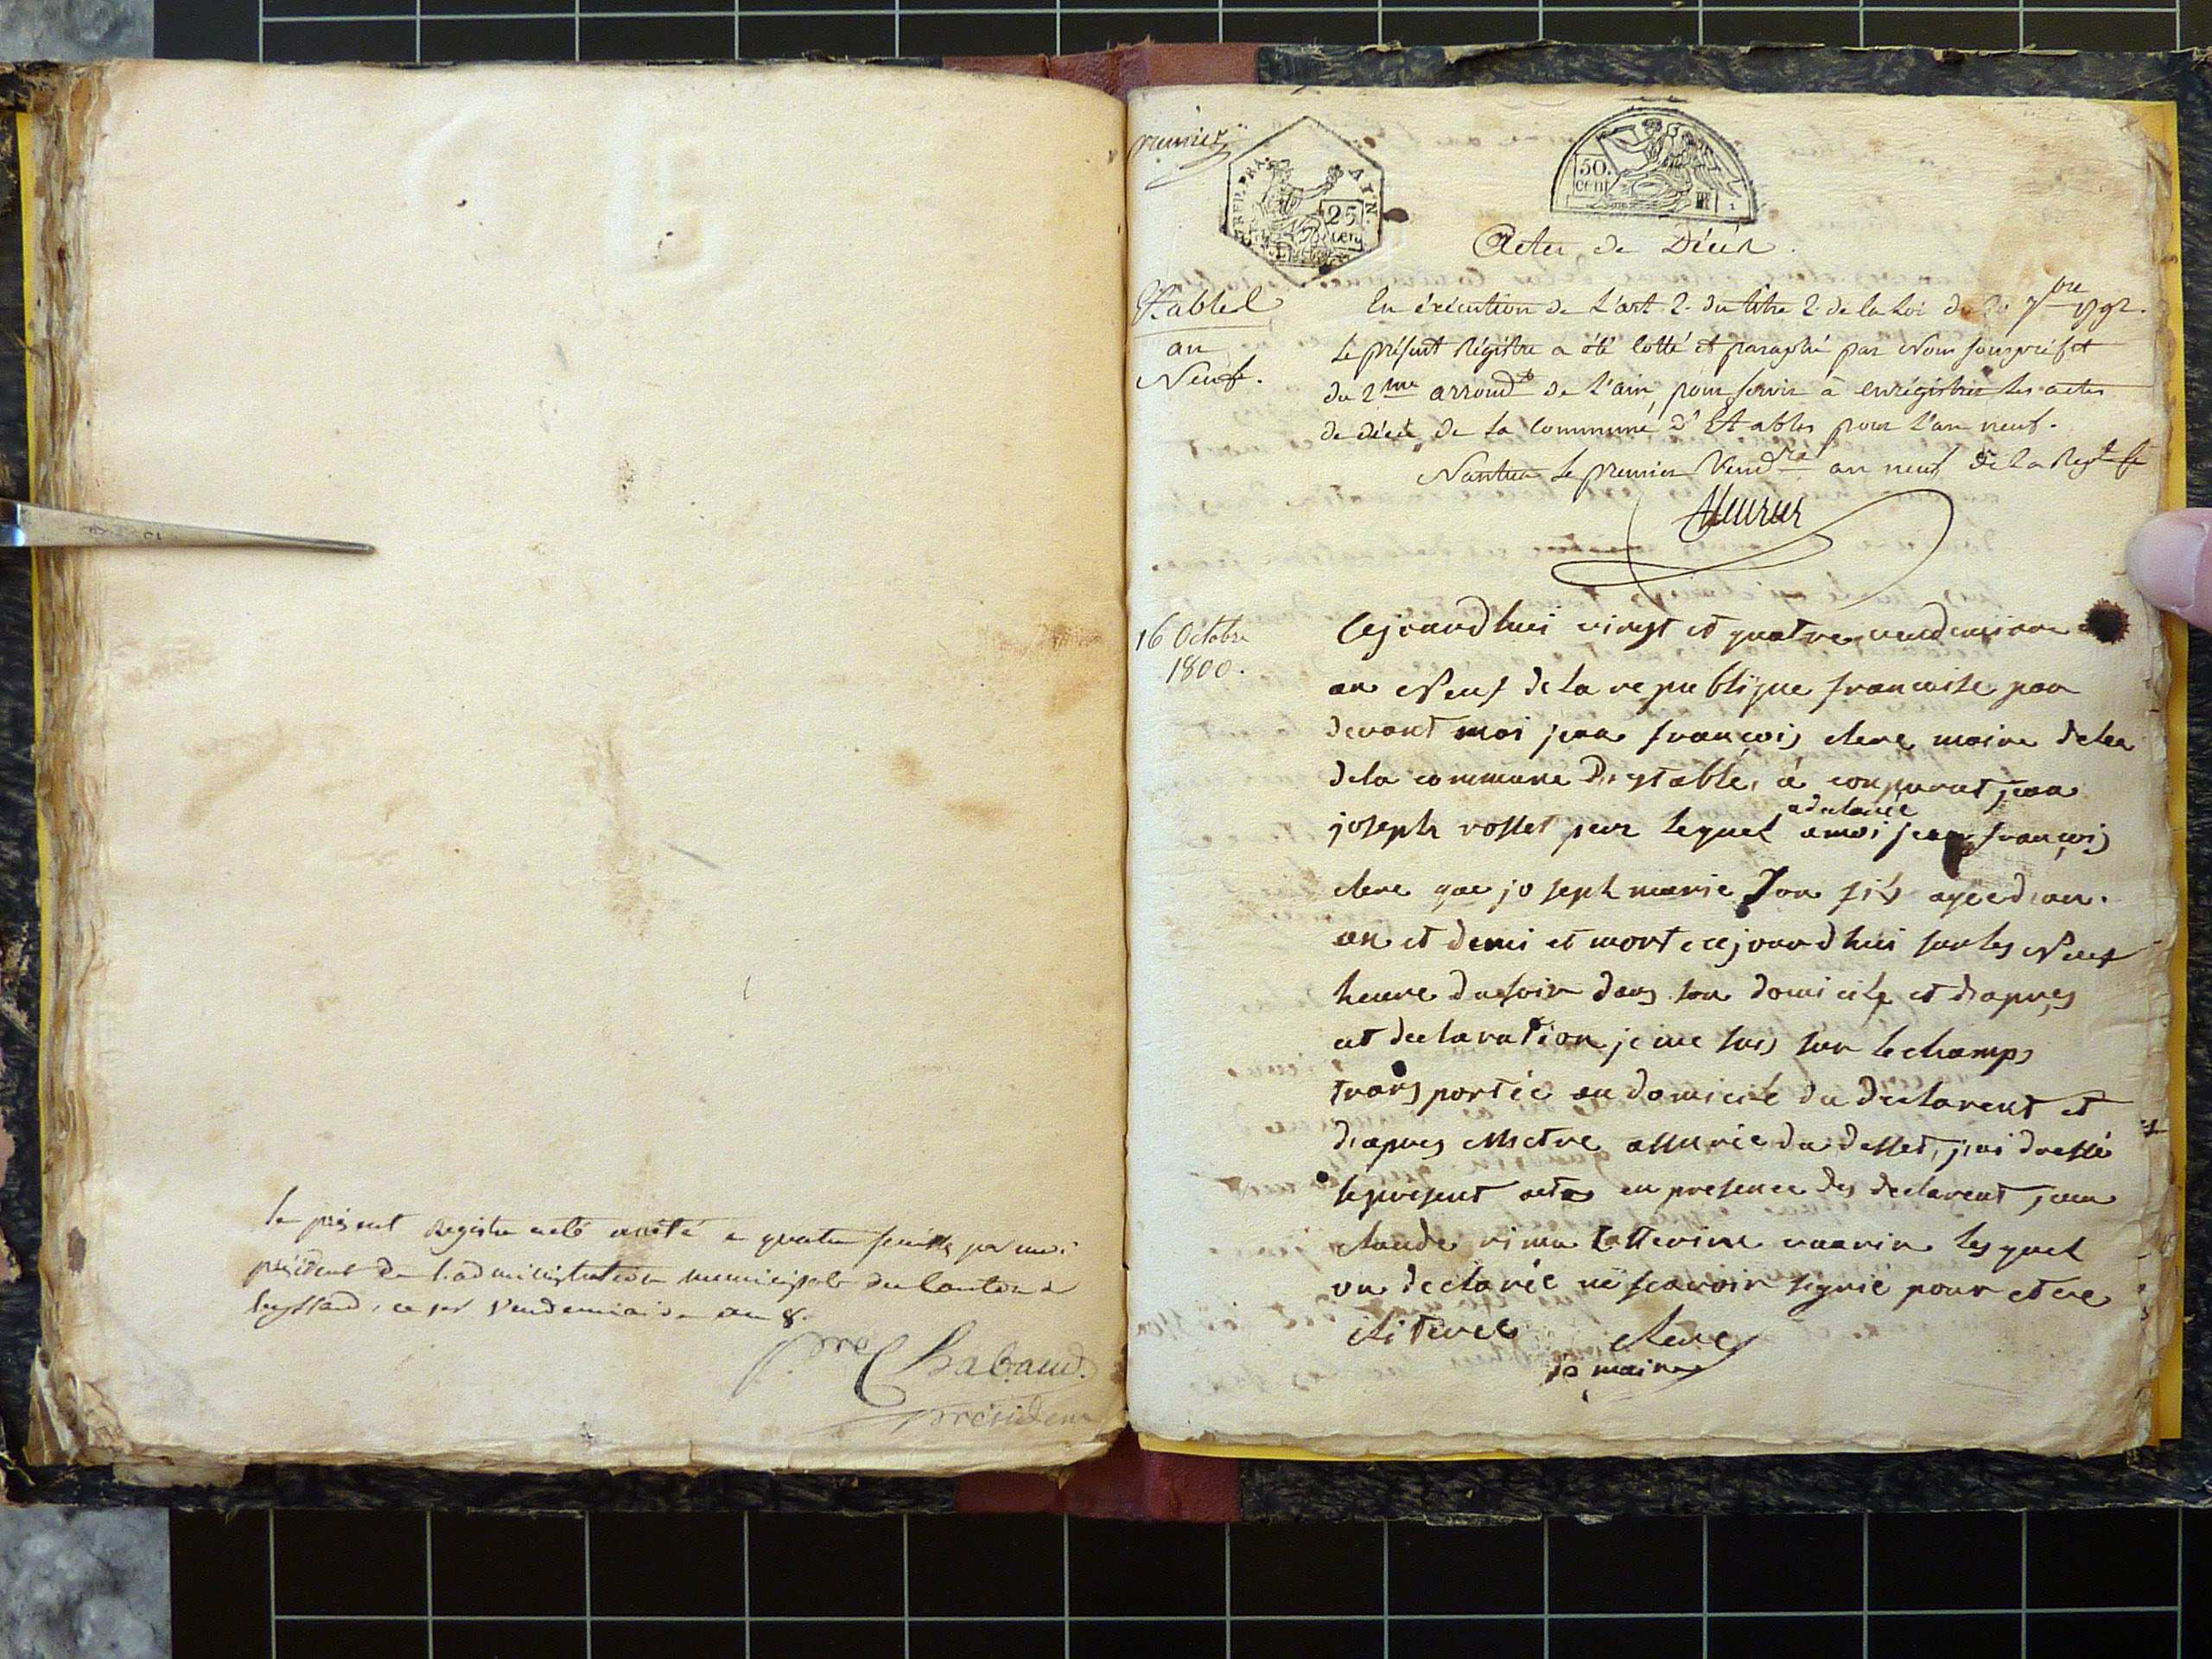 le présent Registre a eté arrêté a quatre feuilles par moi
président de l'administration municipale du Canton de
ce 1er Vendemiaire an 8.
Chabaud.
président
premier
REP. FRA.
AIN.
25
cen
50.
cent
Actes de Décès.
Etables
an
Neuf.
En éxécution de L'art. 2. du titre 2. de la Loi du 20 7bre 1792.
Le présent Régistre a été cotté et paraphé par Nous sous préfet
du 2me arrondt de l'ain, pour servir à enrégistrer les actes
de décès de la Commune d'Etables pour l'an neuf.
Nantua le premier Vendre an neuf de la Repe fse
16 Octobre
1800.
Cejourdhui vingt et quatre vendemiare
an Neuf dela republique francoise par
devant moi jean françois clerc maire dela
dela commune destables à comparut jean
adeclarée
joseph rosset peir lequel amoi jean françois
clerc que joseph marie son fils agee dieu.
an et demi et mort cejourdhui sur les Neuf
heure dusoir dans son domicile et diapres
cet declaration je me suis sur lechamps
transportée au domicile du declarent et
diapres metre assurée du desset, jiai dressé
lepresent acte en presence des declarent jean
claude lesquel
on declarée ne scavoir signié pour etere
clerc
maire